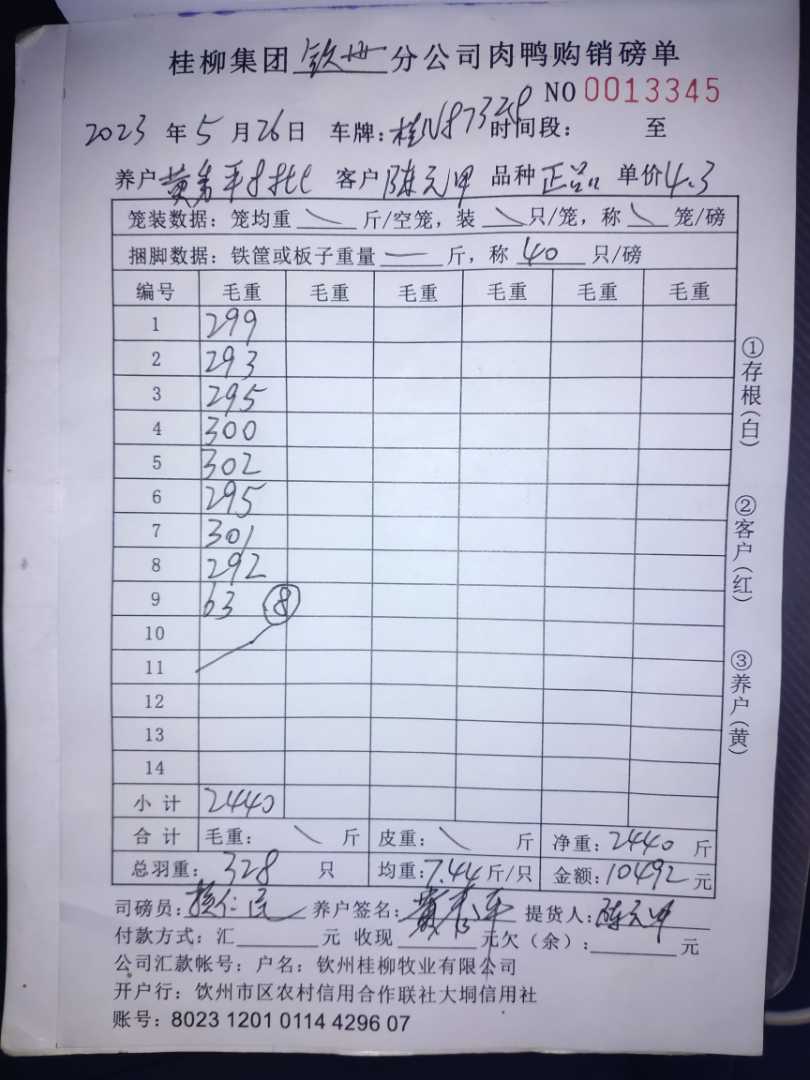 桂柳集团 钦州 分公司肉鸭购销磅单
NO 0013345
2023 年 5 月 26 日 车牌: 桂N87328 时间段: 至
养户 黄 平 批 客户 陈元 品种 正品 单价 4.3
笼装数据: 笼均重 斤/空笼, 装 只/笼, 称 笼/磅
捆脚数据: 铁筐或板子重量 — 斤, 称 40 只/磅
编号 毛重 毛重 毛重 毛重 毛重 毛重
1 299
2 293
3 295
4 300
5 302
6 295
7 301
8 292
9 63 ⑧
10
11
12
13
14
小计 2440
合计 毛重: 斤 皮重: 斤 净重: 2440 斤
总羽重: 328 只 均重: 7.44 斤/只 金额: 10492 元
司磅员: 仁 养户签名: 黄 平 提货人: 陈元
付款方式: 汇 元 收现 元欠(余): 元
公司汇款帐号: 户名: 钦州桂柳牧业有限公司
开户行: 饮州市区农村信用合作联社大垌信用社
账号: 8023 1201 0114 4296 07
①存根(白)
②客户(红)
③养户(黄)